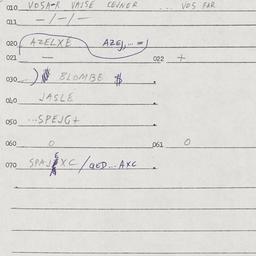 010 VOSA-R VAISE CEJNER ... VOS FAR
011 — / — / —
020 AZELXE AZEJ,... =)
021 — 022 +
030 —) $ BLOMBE $
040 JASLE
050 ...SPEJG+
060 0 061 0
070 SPAJEXC / QED...AXC